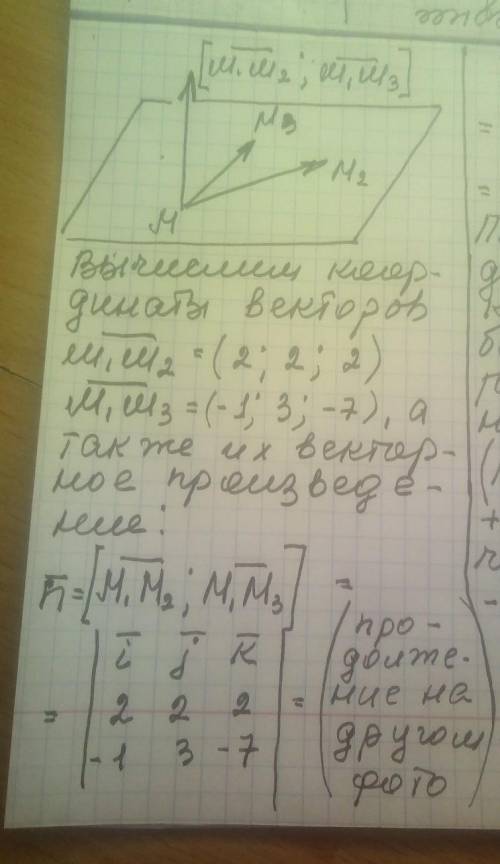 [M₁M₂; M₁M₃]
M₃
M₂
M
Вычислим коор-
динаты векторов
M₁M₂ = (2; 2; 2)
M₁M₃ = (-1; 3; -7), а
также их вектор-
ное произведе-
ние:
n̄ = [M₁M₂; M₁M₃] =
= | ī j̄ k̄ |
2 2 2
-1 3 -7
= (про-
долже-
ние на
другом
фото)